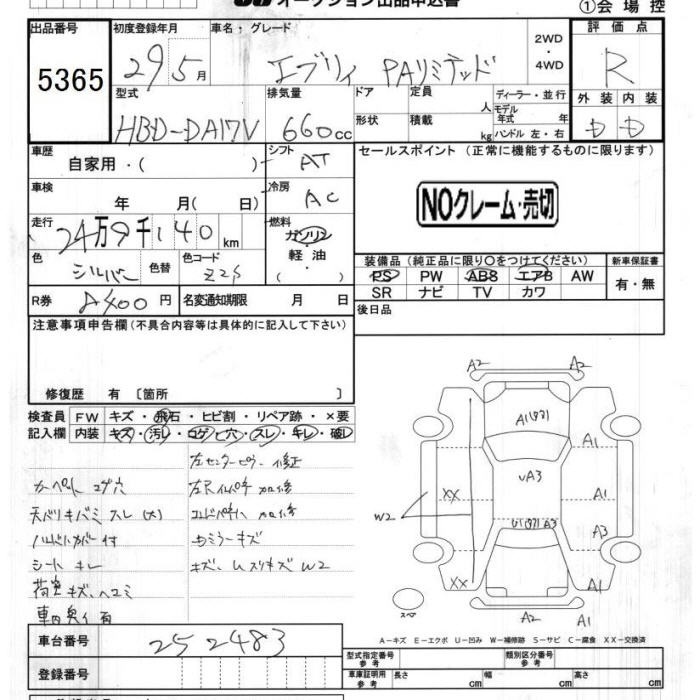 オークション出品申込書
①会場控
出品番号
5365
初度登録年月
29 5月
車名・グレード
エブリィ PAリミテッド
2WD
・
4WD
評価点
R
型式
HBD-DA17V
排気量
660cc
ドア
形状
定員
人
積載
kg
ディーラー・並行
モデル
年式 年
ハンドル 左・右
外装 内装
車歴
自家用・( )
シフト
AT
セールスポイント (正常に機能するものに限ります)
NOクレーム・売切
車検
年 月( 日)
冷房
AC
走行
24万9千140km
燃料
ガソリン
・
軽油
( )
色
シルバー
色替
色コード
Z2S
装備品(純正品に限り○をつけてください)
PS PW ABS エアB AW
SR ナビ TV カワ
新車保証書
有・無
R券
円
名変通知期限 月 日
後日品
注意事項申告欄(不具合内容等は具体的に記入して下さい)
修復歴 有〔箇所 〕
検査員
記入欄
FW キズ・飛石・ヒビ割・リペア跡・×要
内装 キズ・汚レ・コゲ・穴・スレ・キレ・破レ
左センターピラー 修正
カーペット コゲ穴
天バリキバミ スレ(大)
ハンドルカバー付
シート キレ
荷室キズ、ヘコミ
キズ、ムスリキズ W2
A2
A2
A1
A1
A1
A3
A1
A1
A2
UA3
XX
XX
W2
スペア
A-キズ E-エクボ U-凹み W-補修跡 S-サビ C-腐食 XX-交換済
車台番号
252483
登録番号
型式指定番号
参考
類別区分番号
参考
車庫証明用
参考
長さ cm
幅 cm
高さ cm